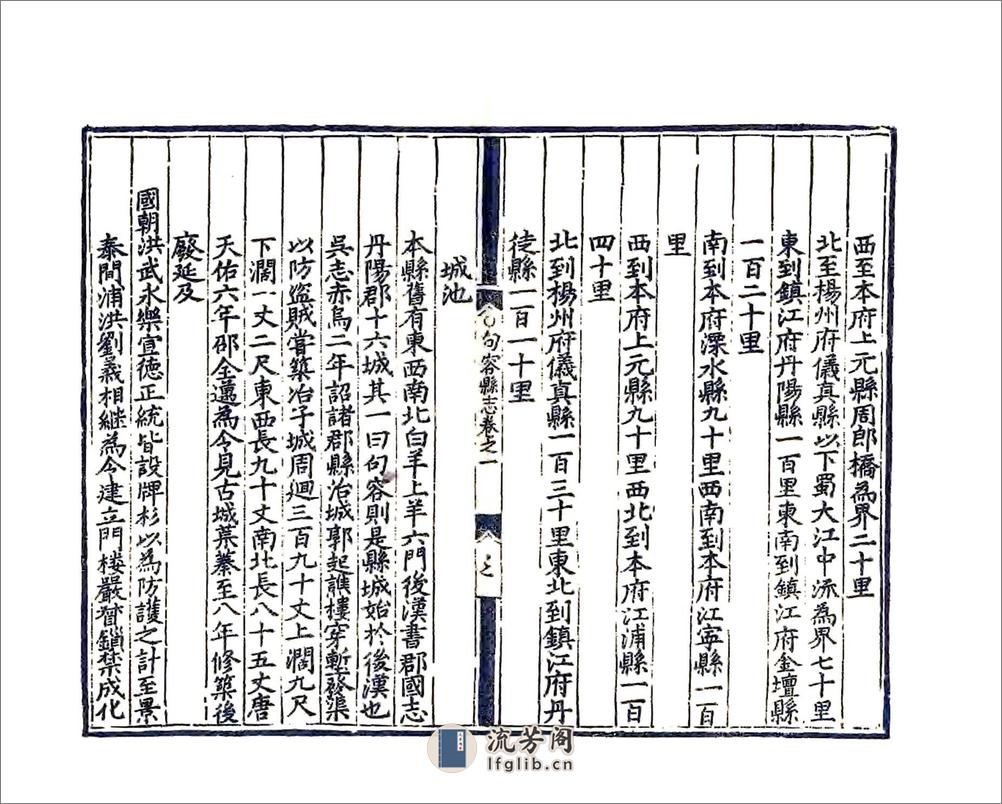 西至本府上元縣周郎橋爲界二十里
北至楊州府儀真縣以下蜀大江中流為界七十里
東到鎮江府丹陽縣一百里東南到鎮江府金壇縣
一百二十里
南到本府溧水縣九十里西南到本府江寧縣一百
里
西到本府上元縣九十里西北到本府江浦縣一百
四十里
北到楊州府儀真縣一百三十里東北到鎮江府丹
徒縣一百一十里
句容縣志卷之一
城池
本縣舊有東西南北白羊上羊六門後漢書郡國志
丹陽郡十六城其一曰句容則是縣城始於後漢也
吳志赤烏二年詔諸郡縣治城郭起譙樓穿塹發渠
以防盜賊嘗築冶子城周迴三百九十丈上濶九尺
下濶一丈二尺東西長九十丈南北長八十五丈唐
天佑六年邵全邁為令見古城蕪蓁至八年修築後
廢延及
國朝洪武永樂宣德正統皆設牌杉以為防護之計至景
泰間浦洪劉義相継為令建立門楼嚴督鎖禁成化
流芳阁
lfglib.cn